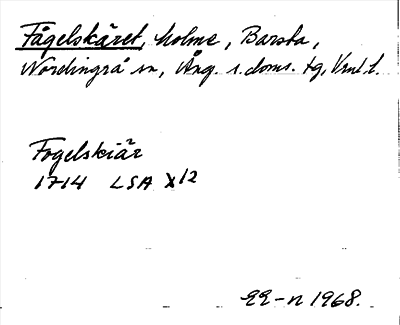 Fågelskäret, holme, Barsta,
Nordingrå sn, Ång. s. doms. tg, Vrnl. l.
Fogelskiär
1714 LSA X12
EE-n 1968.